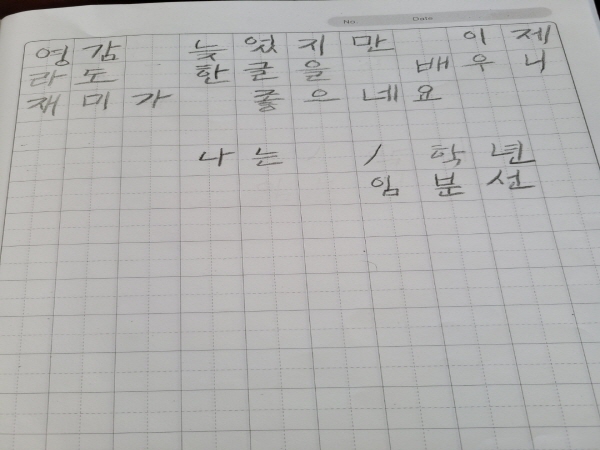 No. Date
영감 늦었지만 이제
라도 한글을 배우니
재미가 좋으네요
나는 1 학년
임분선